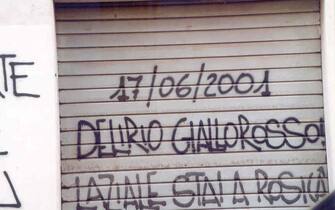 17/06/2001
DELIRIO GIALLOROSSO!
LAZIALE STAI A ROSICA